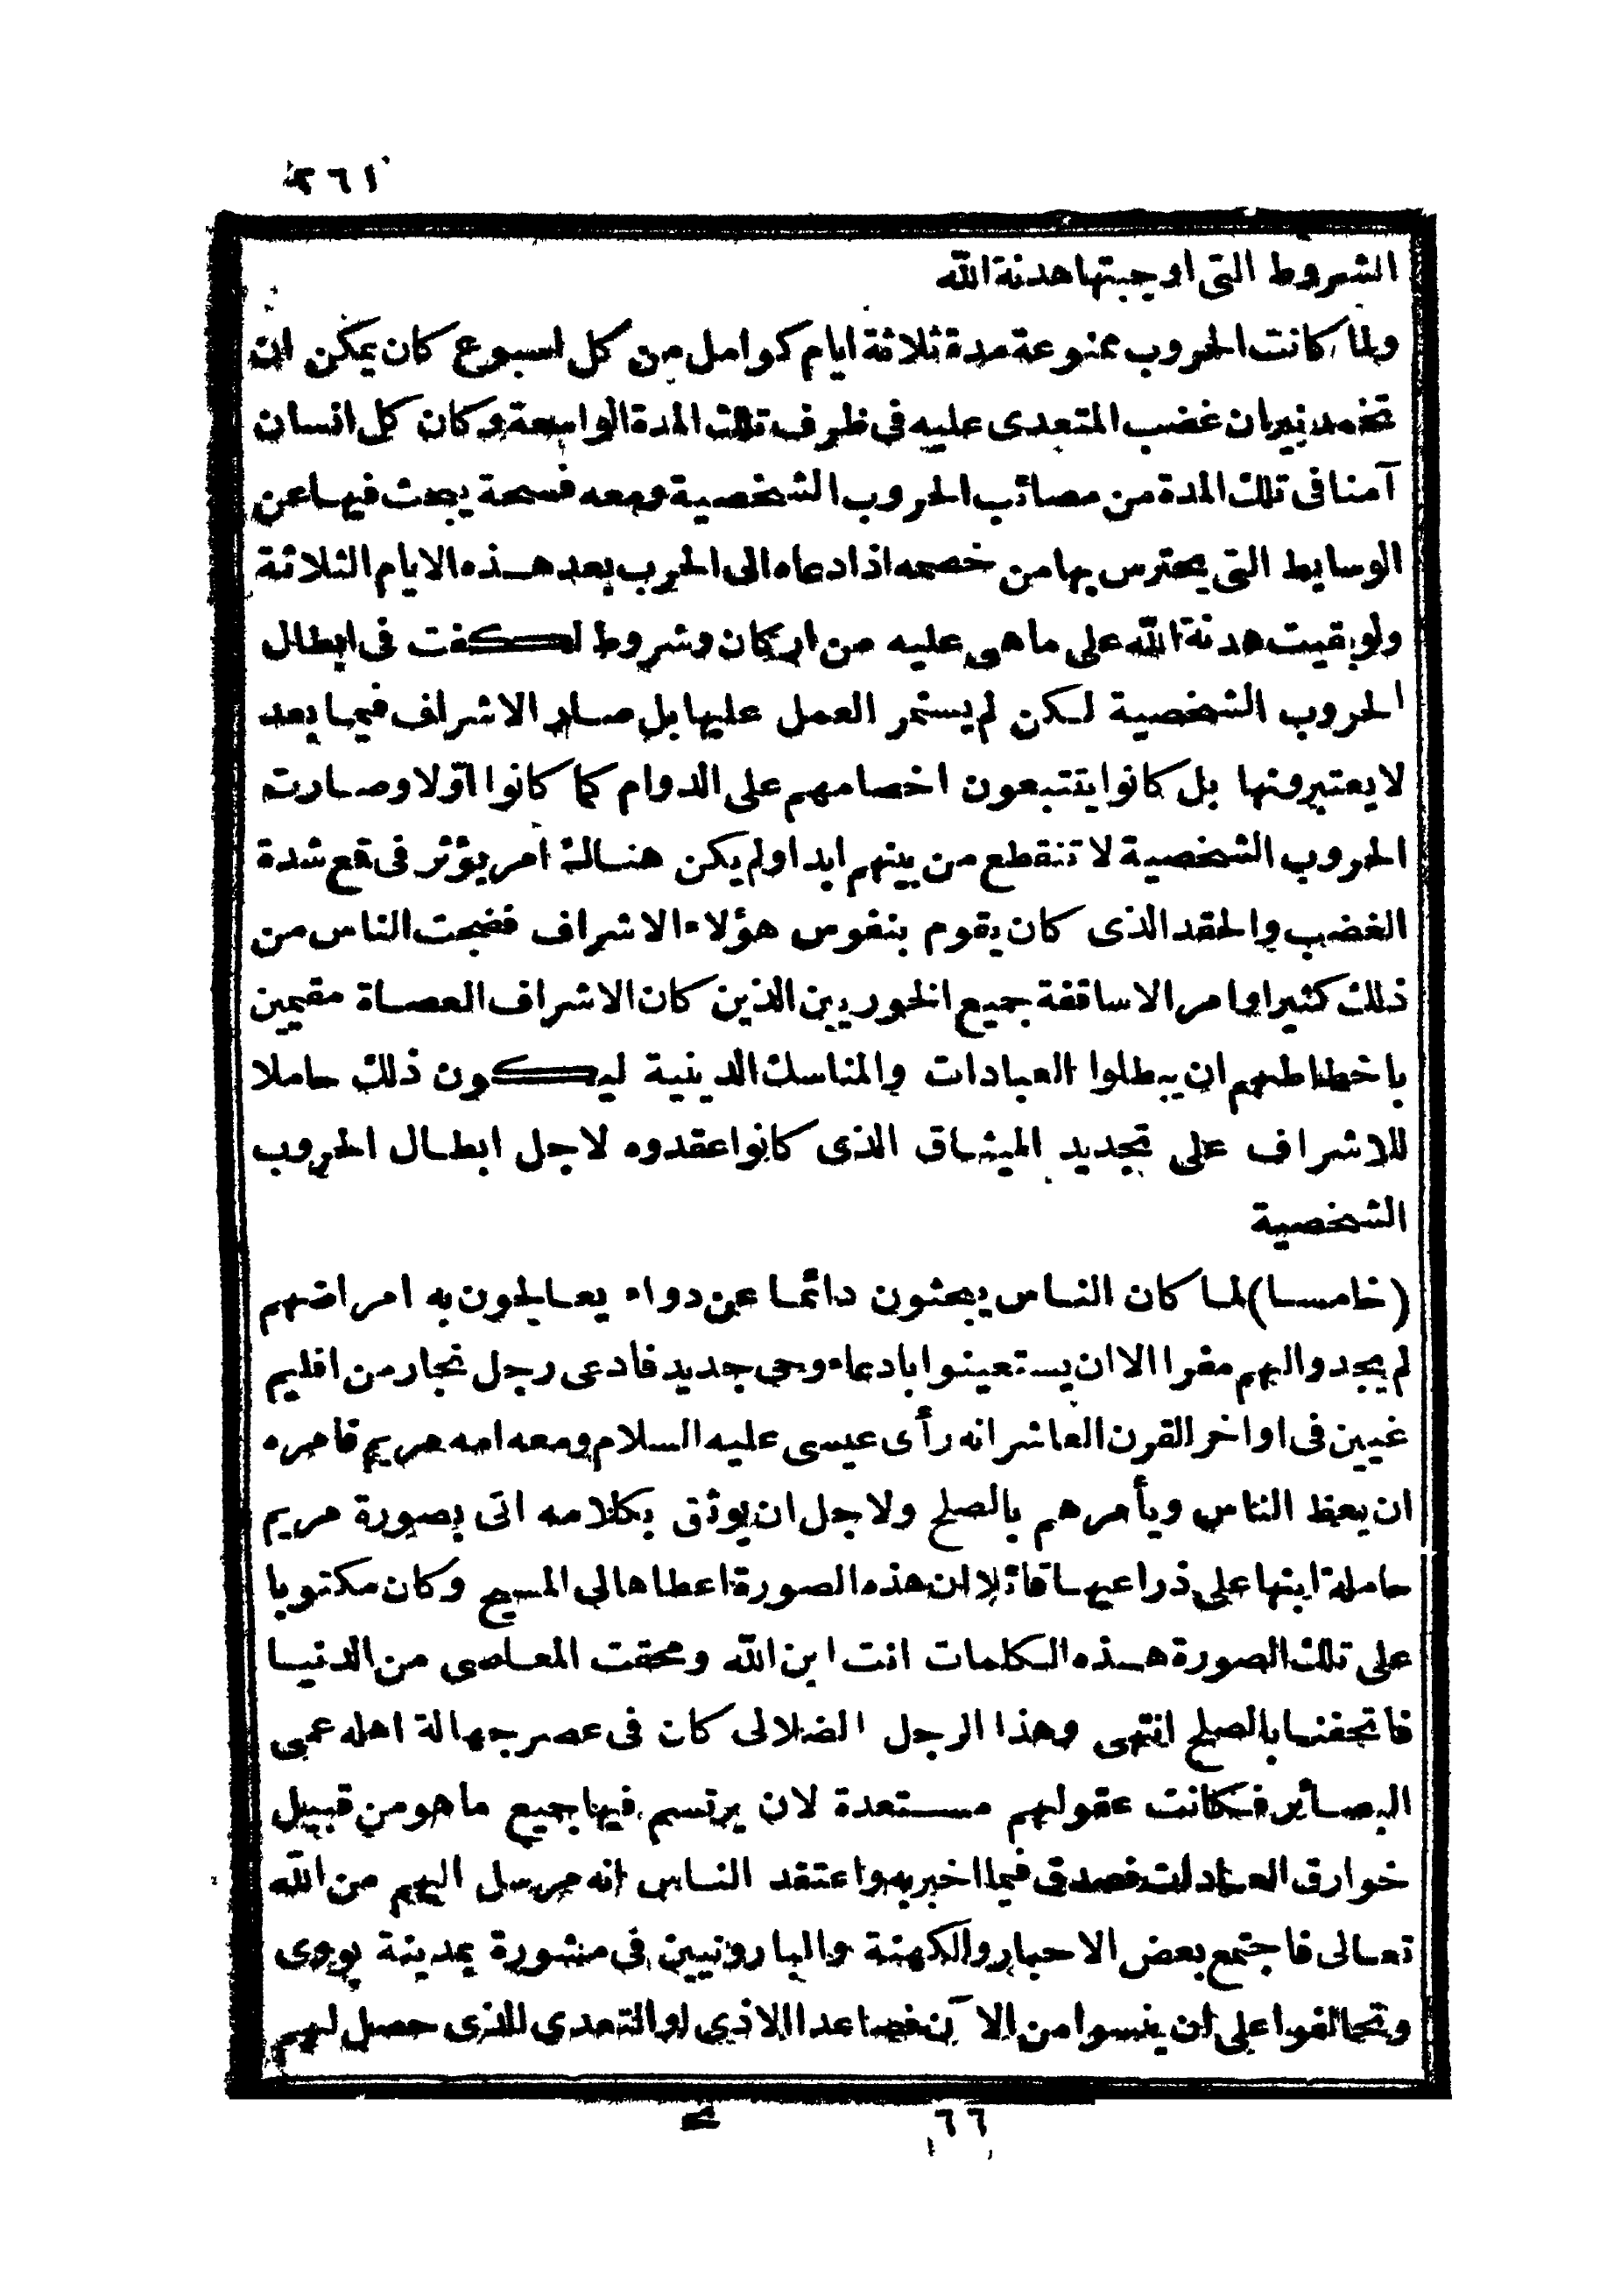 ٢٦١
الشروط التى اوجبتها هدنة الله
ولما كانت الحروب ممنوعة مدة ثلاثة ايام كوامل من كل اسبوع كان يمكن ان
تخمد نيران غضب المتعدى عليه فى ظرف تلك المدة الواسعة وكان كل انسان
آمنا فى تلك المدة من مصائب الحروب الشخصية ومعه فسحة يبحث فيها عن
الوسايط التى يحترس بها من خصمه اذا دعاه الى الحرب بعد هذه الايام الثلاثة
ولو بقيت هدنة الله على ما هى عليه من اركان وشروط لكفت فى ابطال
الحروب الشخصية لكن لم يستمر العمل عليها بل صار الاشراف فيما بعد
لا يعتبرونها بل كانوا يتتبعون اخصامهم على الدوام كما كانوا اوّلا وصارت
الحروب الشخصية لا تنقطع من بينهم ابدا ولم يكن هناك امر يؤثر فى قمع شدة
الغضب والحقد الذى كان يقوم بنفوس هؤلاء الاشراف فضجت الناس من
ذلك كثيرا وامر الاساقفة جميع الخوريين الذين كان الاشراف العصاة مقيمين
باخطاطهم ان يبطلوا العبادات والمناسك الدينية ليكون ذلك حاملا
للاشراف على تجديد الميثاق الذى كانوا عقدوه لاجل ابطال الحروب
الشخصية
(خامسا) لما كان الناس يبحثون دائما عن دواء يعالجون به امراضهم
لم يجدوا لهم مفرا الا ان يستعينوا بادعاء وحى جديد فادعى رجل نجار من اقليم
غيين فى اواخر القرن العاشر انه رأى عيسى عليه السلام ومعه امه مريم فامره
ان يعظ الناس ويأمرهم بالصلح ولاجل ان يوثق بكلامه اتى بصورة مريم
حاملة ابنها على ذراعيها قائلا ان هذه الصورة اعطاها لى المسيح وكان مكتوبا
على تلك الصورة هذه الكلمات انت ابن الله ومحقت المعاصى من الدنيا
فاتحفنا بالصلح انتهى وهذا الرجل الضلالى كان فى عصر جهالة اهله عمى
البصائر فكانت عقولهم مستعدة لان يرتسم فيها جميع ما هو من قبيل
خوارق العادات فصدق فيما اخبر به واعتقد الناس انه مرسل اليهم من الله
تعالى فاجتمع بعض الاحبار والكهنة والبارونيين فى مشورة بمدينة بووى
وتحالفوا على ان ينسوا من الآن فصاعدا الاذى او التعدى الذى حصل لهم
٦٦